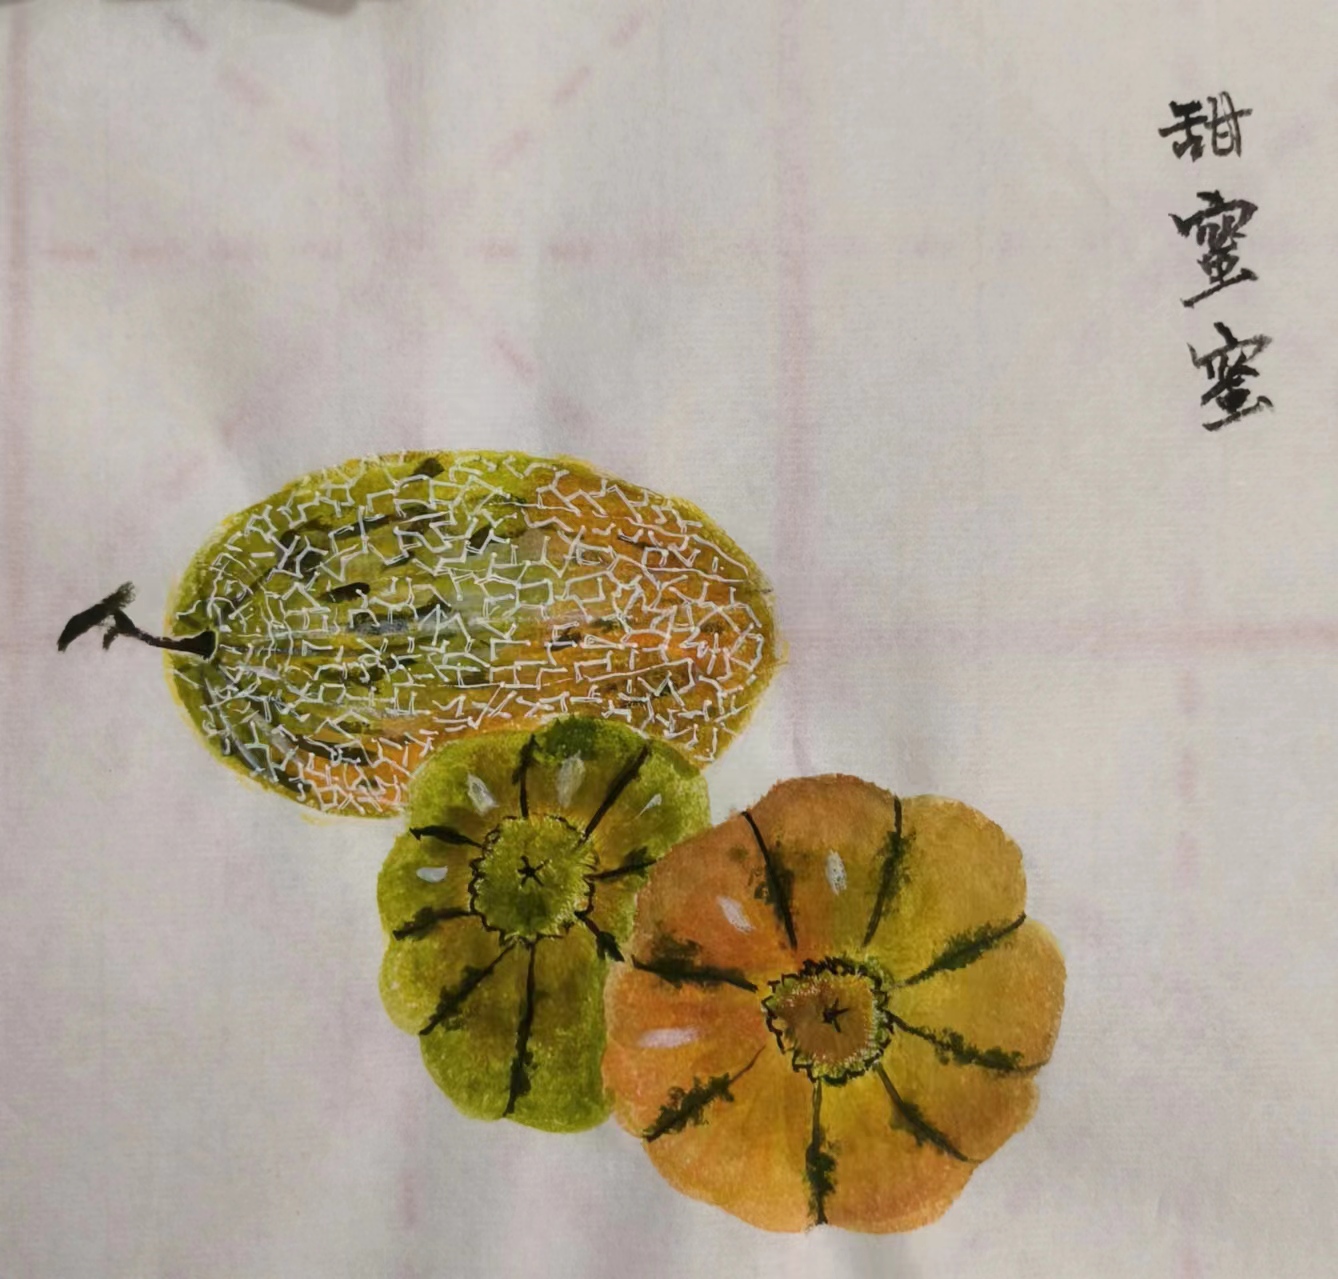 甜蜜蜜